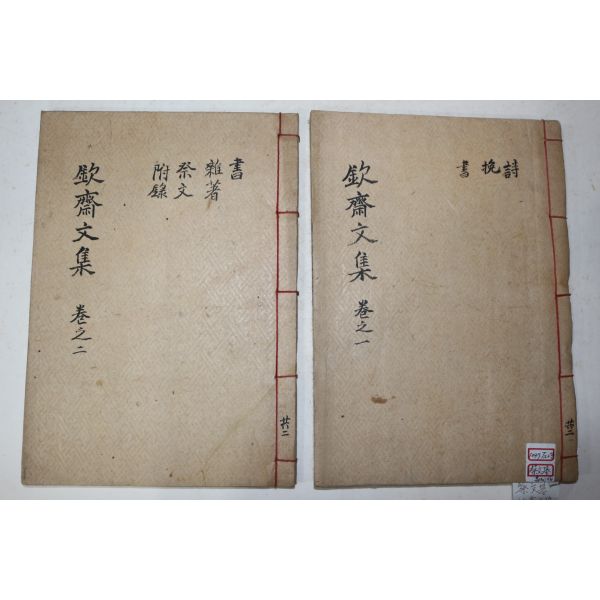 詩
挽
書
欽齋文集 卷之一
共二
書
雜著
祭文
附錄
欽齋文集 卷之二
共二